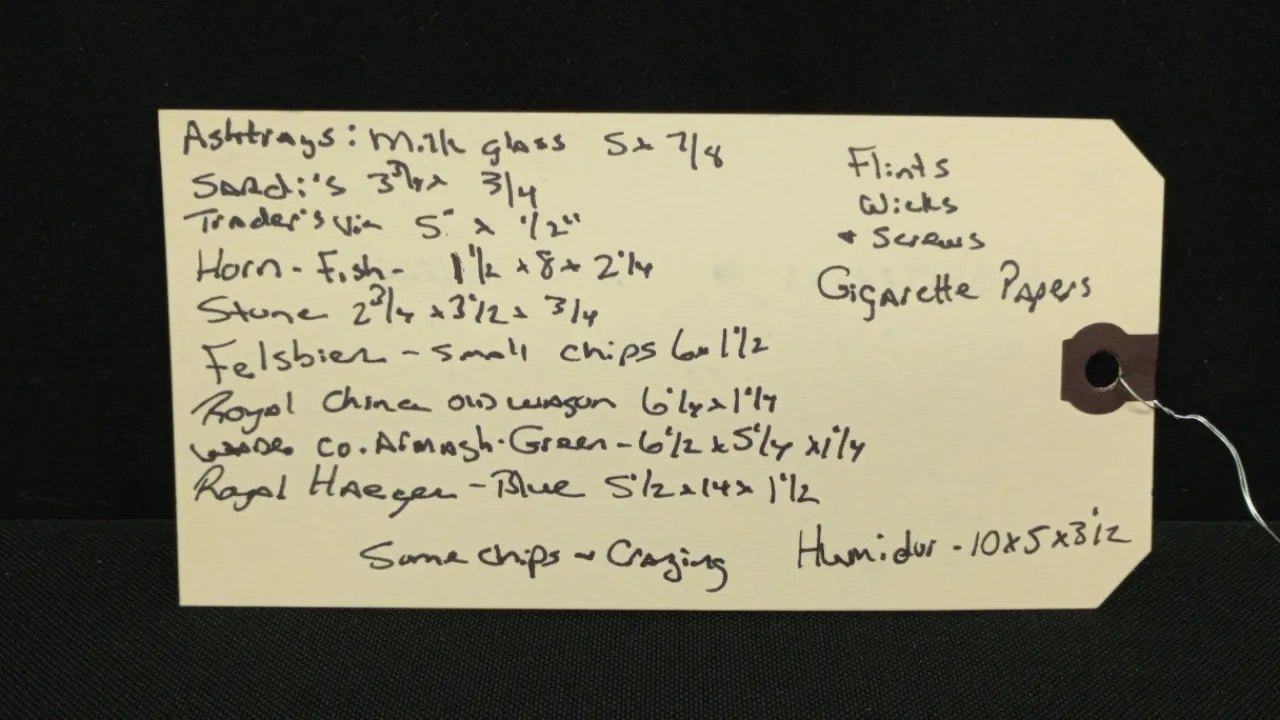 Ashtrays: Milk glass 5x 7/8
SARdi's 3 3/4x 3/4
Trader's Vic 5" x 1/2"
Horn - Fish - 1 1/2 x 8 x 2 1/4
Stone 2 3/4 x 3 1/2 x 3/4
Felsbier - small chips 6x 1 1/2
Royal China OLD WAGON 6 1/4 x 1 1/4
WADE CO. Armagh. Green - 6 1/2 x 5 1/4 x 1 1/4
Royal HAeger - Blue 5 1/2 x 14 x 1 1/2
Some chips + Crazing
Flints
Wicks
+ Screws
Cigarette PAPers
Humidor - 10 x 5 x 3 1/2